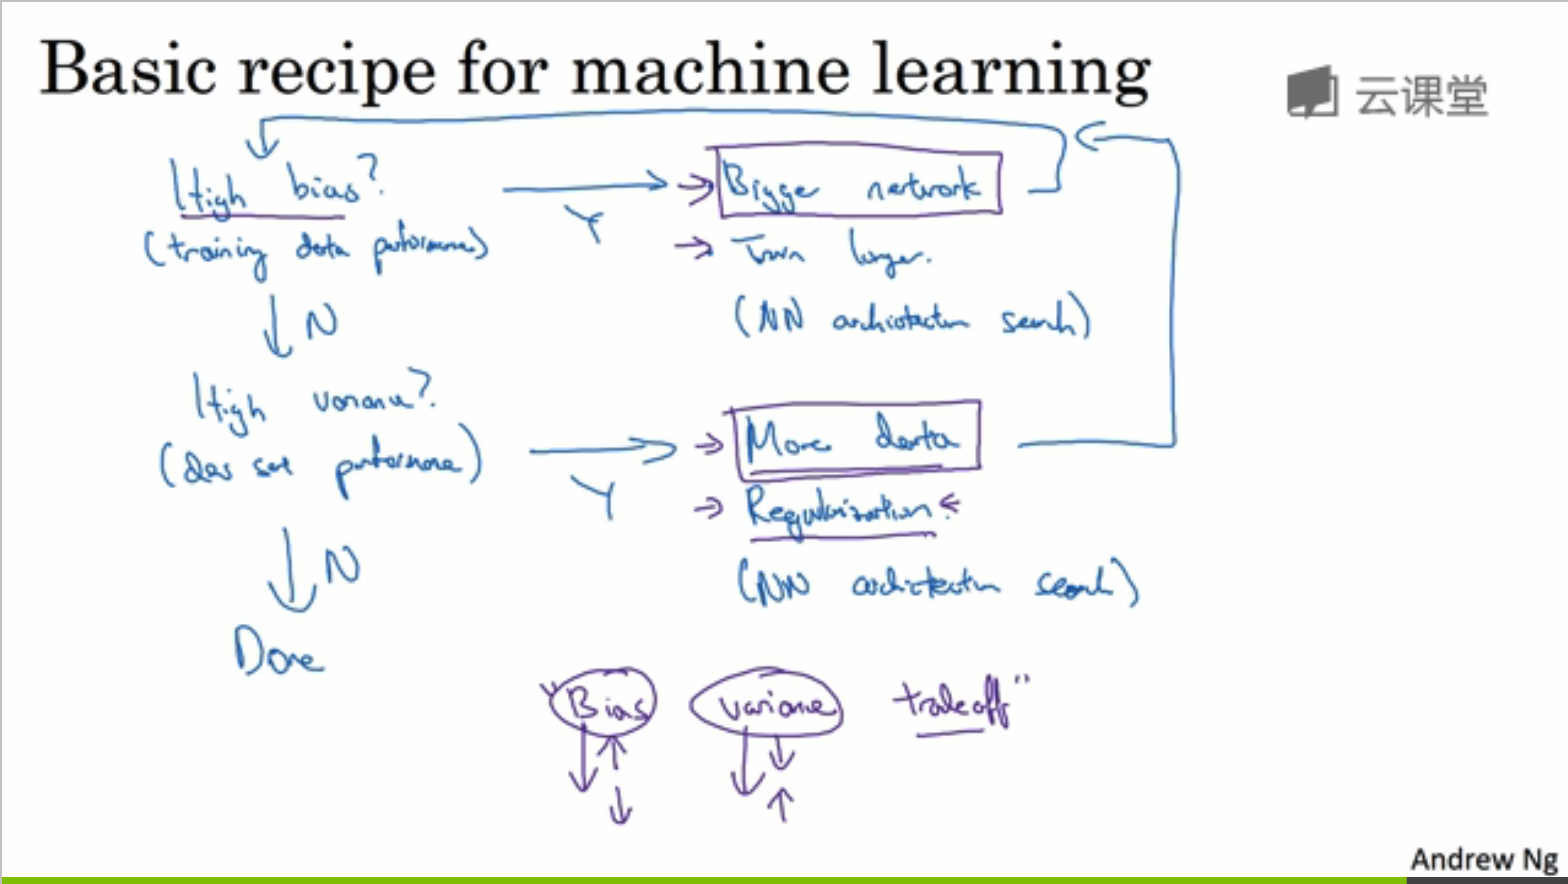 Basic recipe for machine learning
云课堂
High bias?
(training data performance)
Y
Bigger network
Train longer.
(NN architecture search)
N
High variance?
(dev set performance)
Y
More data
Regularization.
(NN architecture search)
N
Done
"Bias variance tradeoff"
Andrew Ng